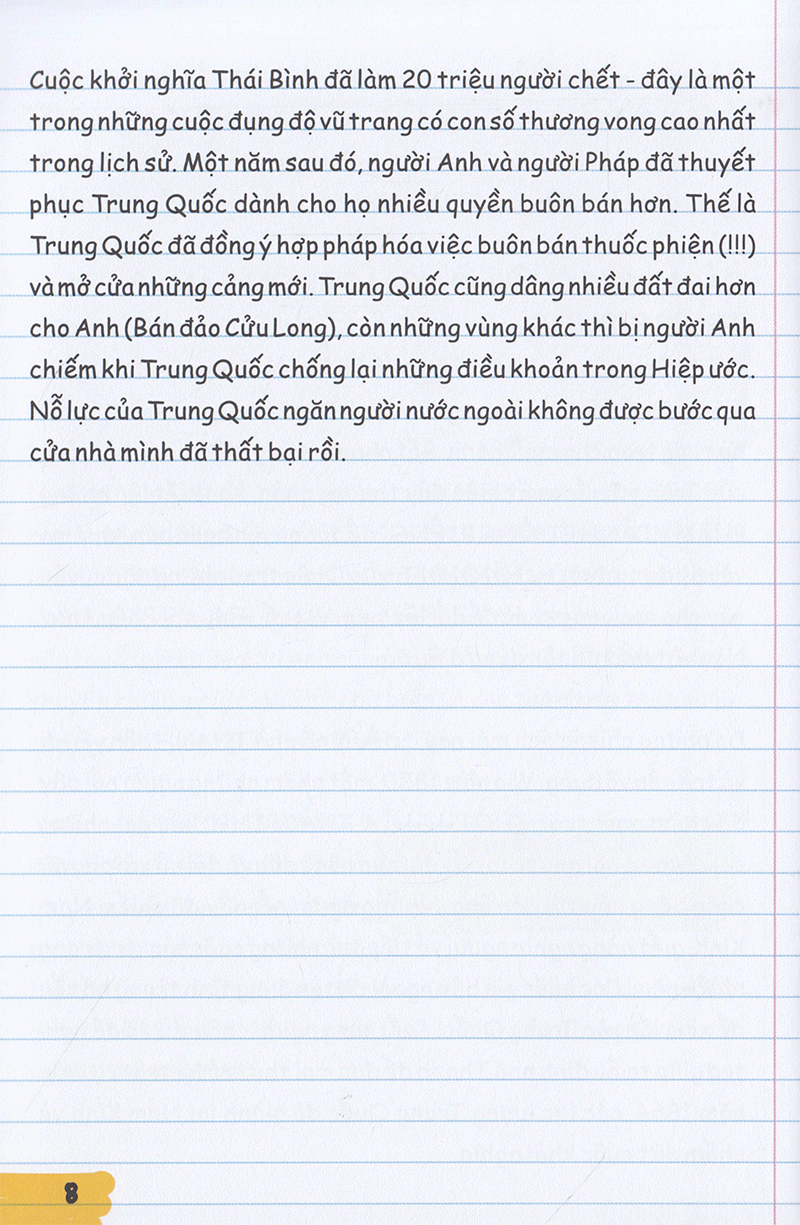 Cuộc khởi nghĩa Thái Bình đã làm 20 triệu người chết - đây là một
trong những cuộc đụng độ vũ trang có con số thương vong cao nhất
trong lịch sử. Một năm sau đó, người Anh và người Pháp đã thuyết
phục Trung Quốc dành cho họ nhiều quyền buôn bán hơn. Thế là
Trung Quốc đã đồng ý hợp pháp hóa việc buôn bán thuốc phiện (!!!)
và mở cửa những cảng mới. Trung Quốc cũng dâng nhiều đất đai hơn
cho Anh (Bán đảo Cửu Long), còn những vùng khác thì bị người Anh
chiếm khi Trung Quốc chống lại những điều khoản trong Hiệp ước.
Nỗ lực của Trung Quốc ngăn người nước ngoài không được bước qua
cửa nhà mình đã thất bại rồi.
8